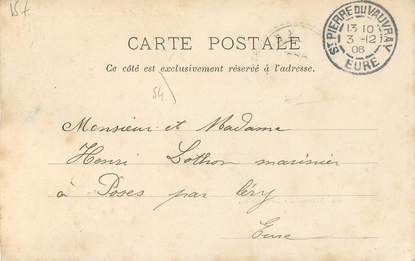 15 f
CARTE POSTALE
Ce côté est exclusivement réservé à l'adresse.
ST PIERRE DU VAUVRAY
13 10
3 -12
06
EURE
54
Monsieur et Madame
Henri Lothon marinier
à Poses par Léry
Eure